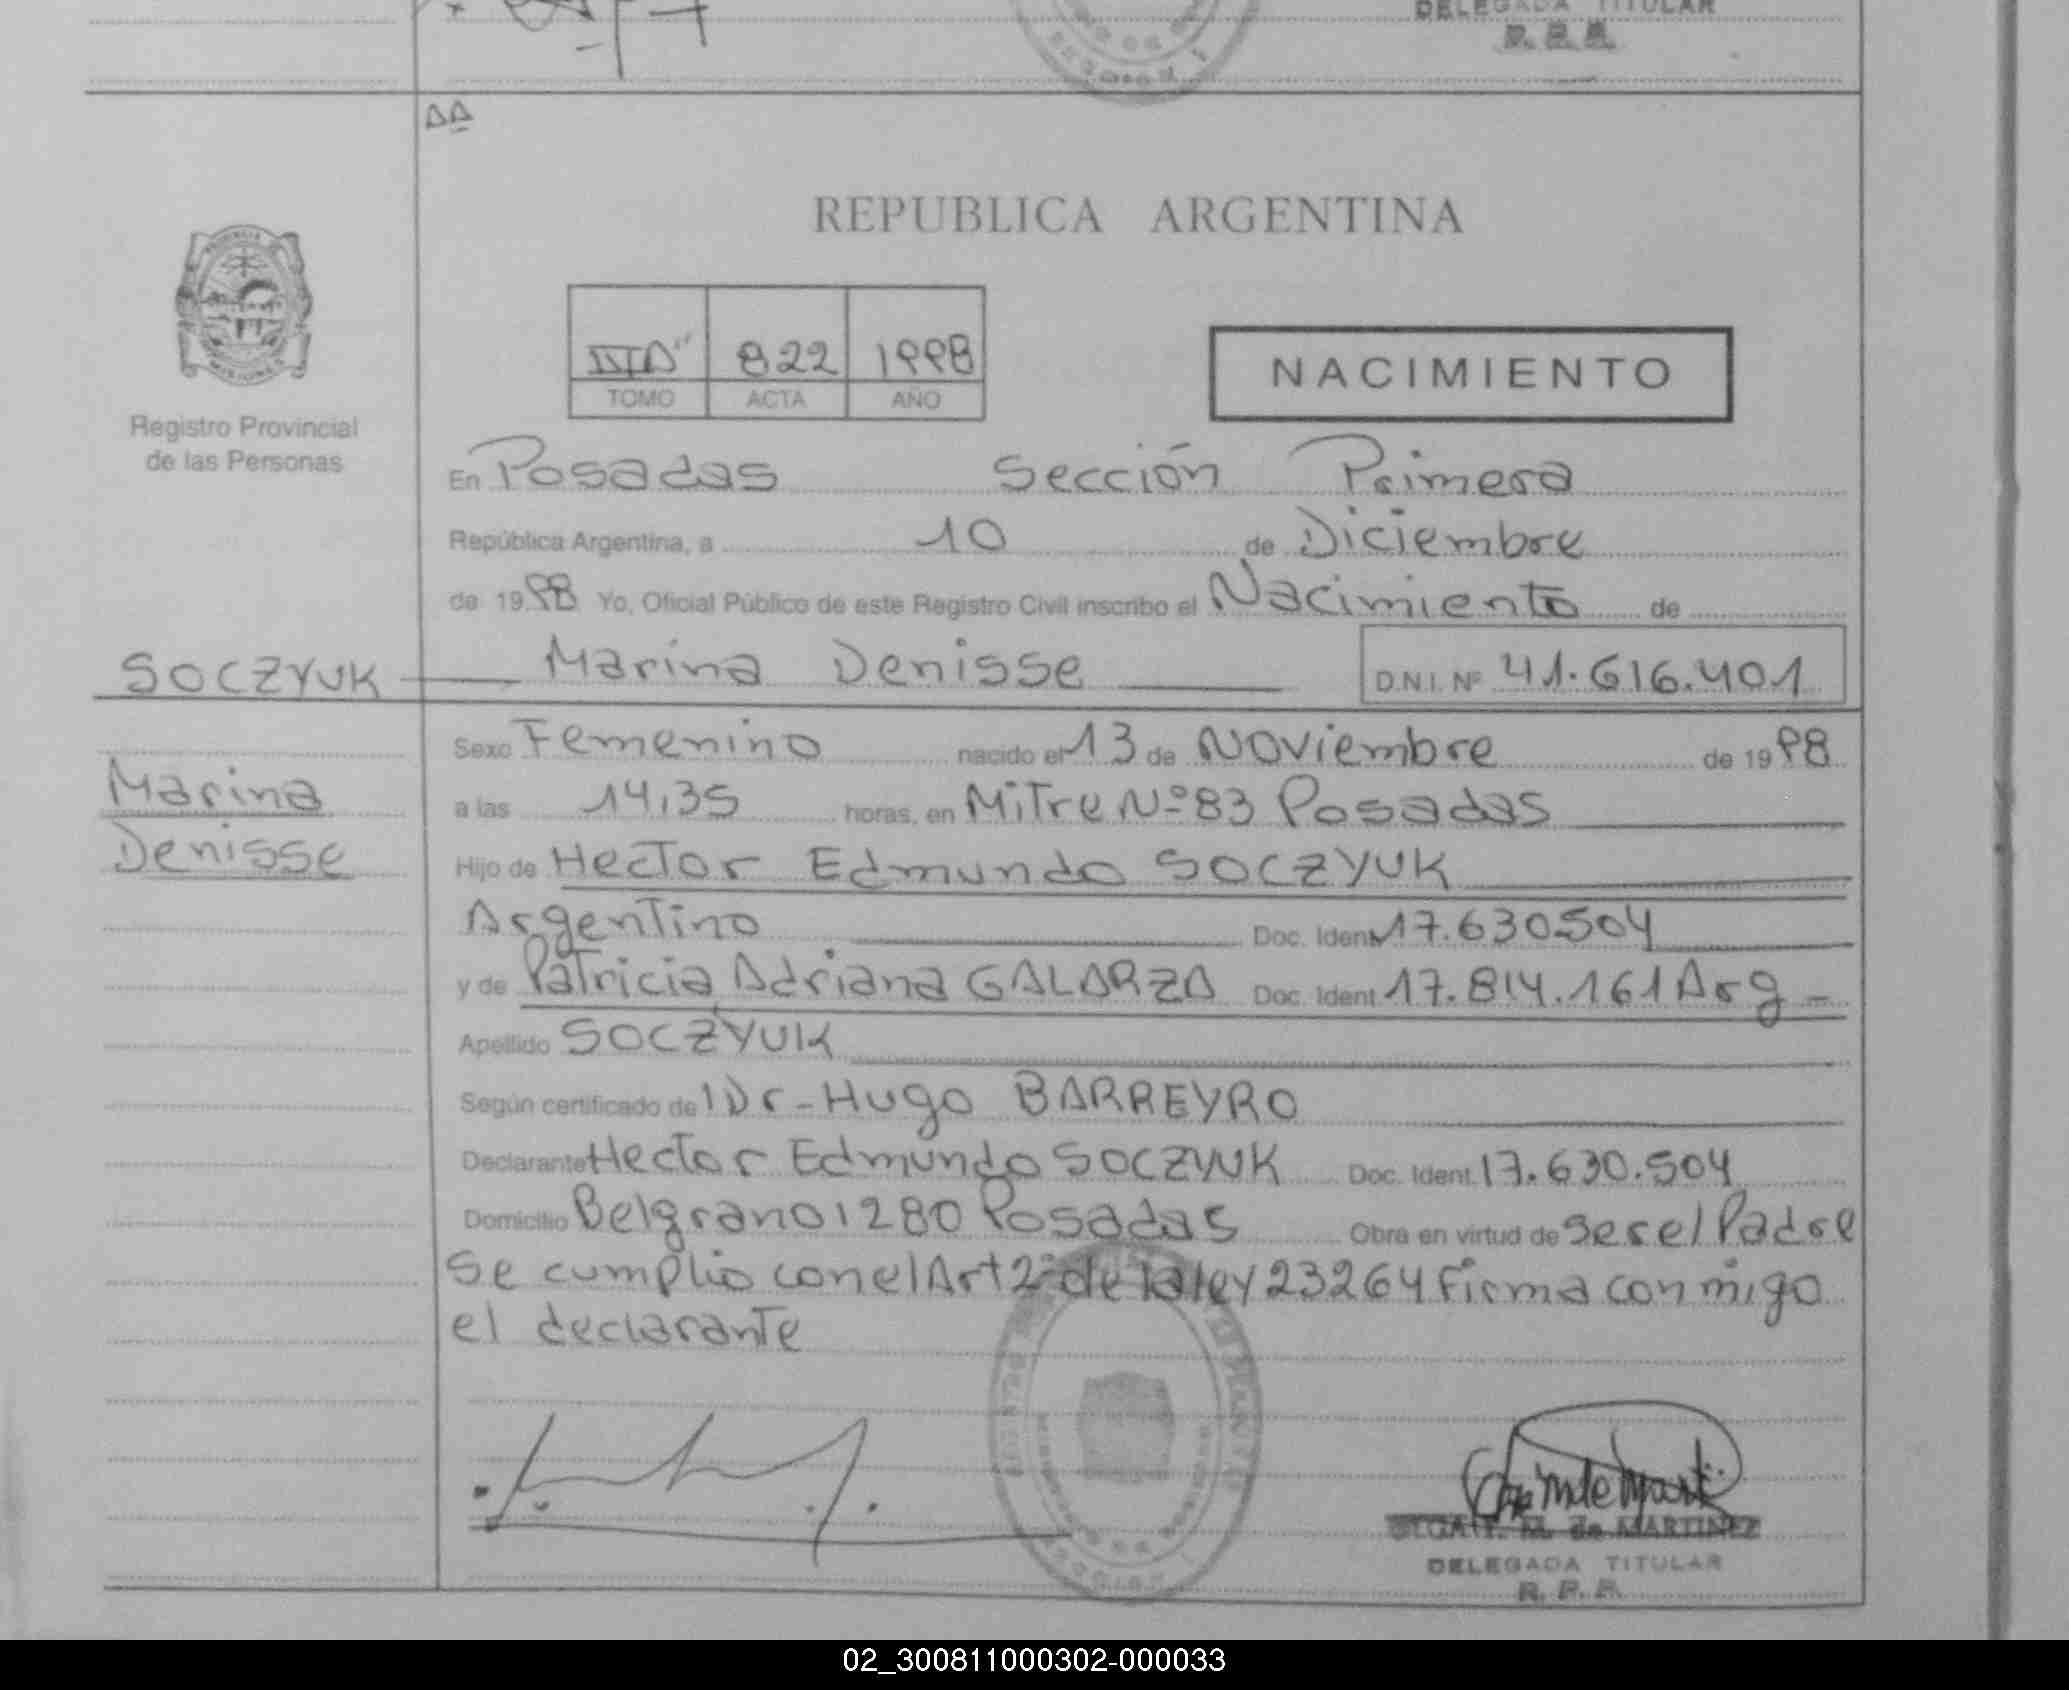 DELEGADA TITULAR
R. P. P.
AA
REPUBLICA ARGENTINA
822 1998
TOMO ACTA AÑO
NACIMIENTO
Registro Provincial
de las Personas
En Posadas Sección Primera
República Argentina, a 10 de Diciembre
de 1998 Yo, Oficial Público de este Registro Civil inscribo el Nacimiento de
SOCZYUK Marina Denisse D.N.I. Nº 41.616.401
Marina
Denisse
Sexo Femenino nacido el 13 de Noviembre de 1998
a las 14,35 horas, en Mitre Nº 83 Posadas
Hijo de Hector Edmundo SOCZYUK
Argentino Doc. Ident 17.630.504
y de Patricia Adriana GALARZA Doc. Ident 17.814.161 Arg
Apellido SOCZYUK
Según certificado de Dr-Hugo BARREYRO
Declarante Hector Edmundo SOCZYUK Doc. Ident. 17.630.504
Domicilio Belgrano 1280 Posadas Obra en virtud de ser el Padre
Se cumplio con el Art 2º de la ley 23264 Firma conmigo
el declarante
M. de MARTINEZ
DELEGADA TITULAR
R. P. P.
02_300811000302-000033